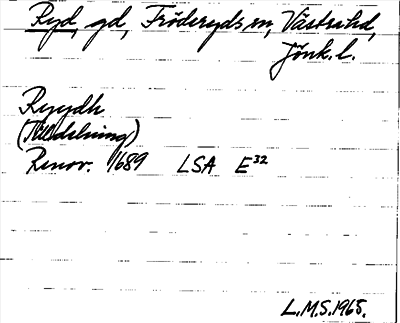 Ryd, gd, Fröderyds sn, Västra hd,
Jönk. l.
Ryydh
(Tilldelning)
Renov. 1689 LSA E³²
L.M.S. 1965.